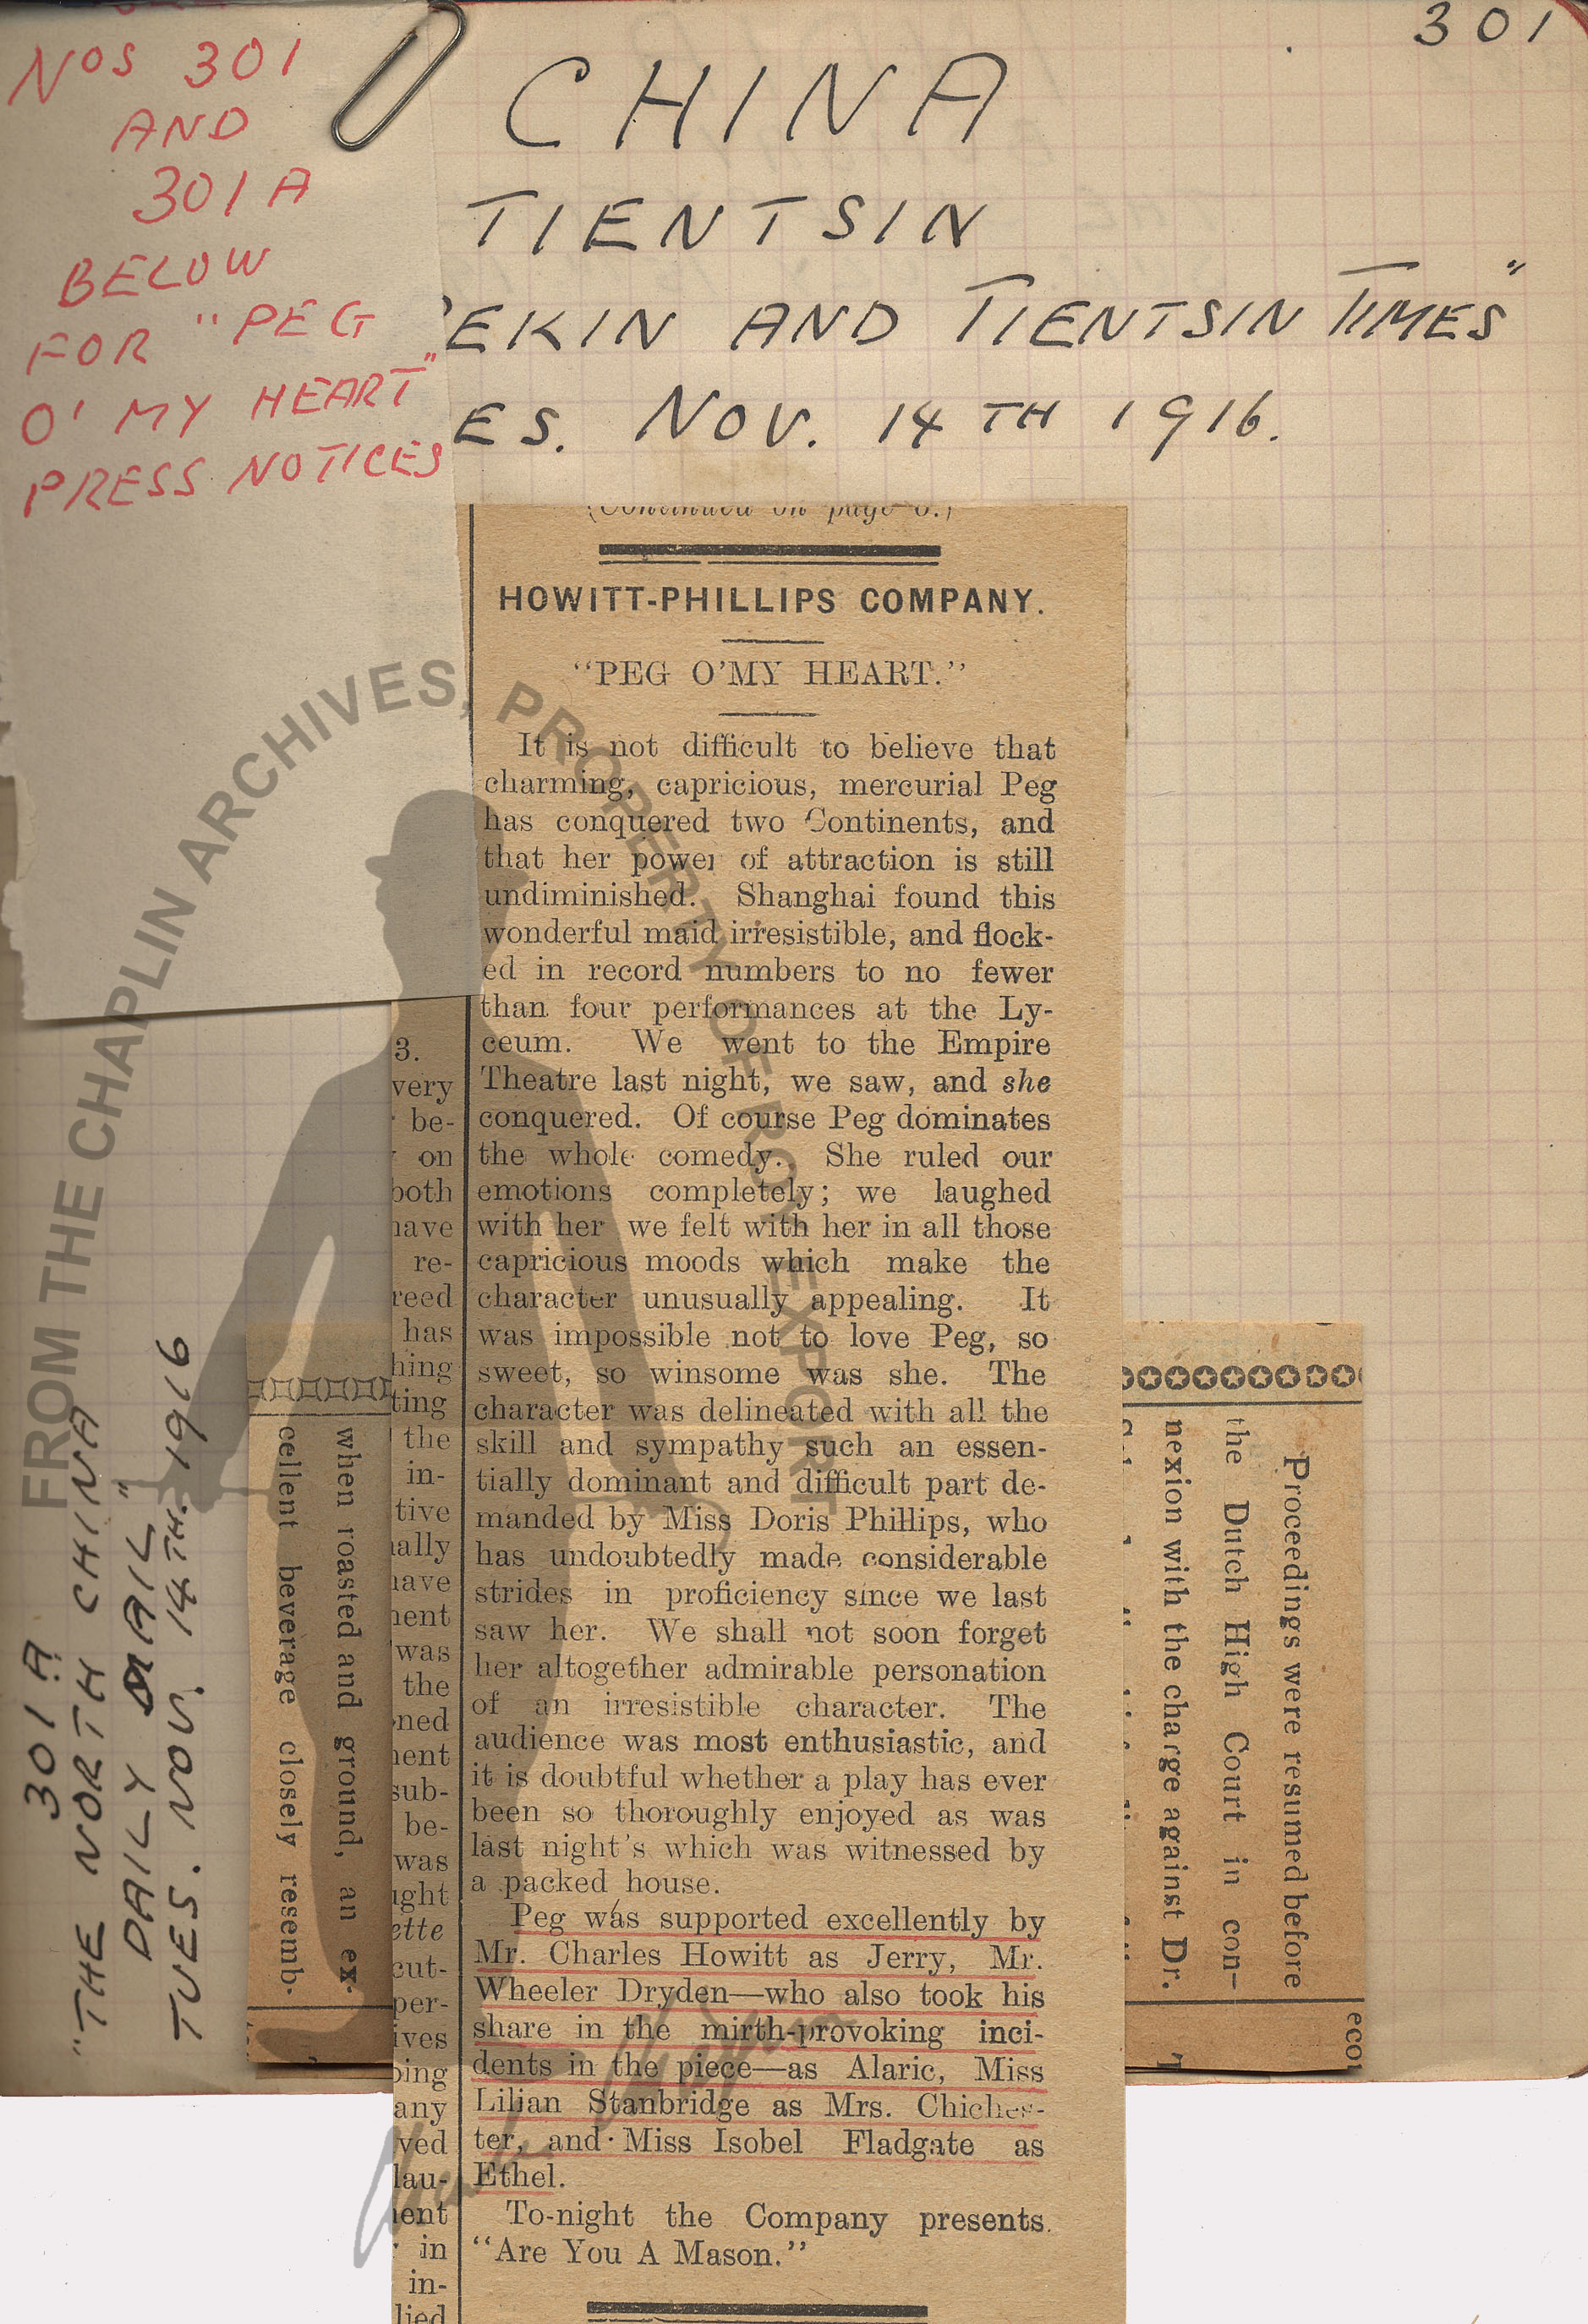 301
Nos 301
AND
301A
BELOW
FOR "PEG
O' MY HEART"
PRESS NOTICES
CHINA
TIENTSIN
PEKIN AND TIENTSIN TIMES"
ES. NOV. 14TH 1916.
(Continued on page 6.)
HOWITT-PHILLIPS COMPANY.
"PEG O'MY HEART."
It is not difficult to believe that
charming, capricious, mercurial Peg
has conquered two Continents, and
that her power of attraction is still
undiminished. Shanghai found this
wonderful maid irresistible, and flock-
ed in record numbers to no fewer
than four performances at the Ly-
ceum. We went to the Empire
Theatre last night, we saw, and she
conquered. Of course Peg dominates
the whole comedy. She ruled our
emotions completely; we laughed
with her we felt with her in all those
capricious moods which make the
character unusually appealing. It
was impossible not to love Peg, so
sweet, so winsome was she. The
character was delineated with all the
skill and sympathy such an essen-
tially dominant and difficult part de-
manded by Miss Doris Phillips, who
has undoubtedly made considerable
strides in proficiency since we last
saw her. We shall not soon forget
her altogether admirable personation
of an irresistible character. The
audience was most enthusiastic, and
it is doubtful whether a play has ever
been so thoroughly enjoyed as was
last night's which was witnessed by
a packed house.
Peg was supported excellently by
Mr. Charles Howitt as Jerry, Mr.
Wheeler Dryden—who also took his
share in the mirth-provoking inci-
dents in the piece—as Alaric, Miss
Lilian Stanbridge as Mrs. Chiches-
ter, and Miss Isobel Fladgate as
Ethel.
To-night the Company presents.
"Are You A Mason."
3.
very
be-
on
both
have
re-
reed
has
hing
ting
the
in-
tive
ally
have
ment
was
the
ned
ment
sub-
be-
was
ught
ette
cut-
per-
ives
oing
any
ved
lau-
ment
in
in-
lied
301A
"THE NORTH CHINA
DAILY MAIL"
TUES. NOV. 14TH. 1916
when roasted and ground, an ex-
cellent beverage closely resemb-
Proceedings were resumed before
the Dutch High Court in con-
nexion with the charge against Dr.
eco
FROM THE CHAPLIN ARCHIVES, PROPERTY OF ROY EXPORT